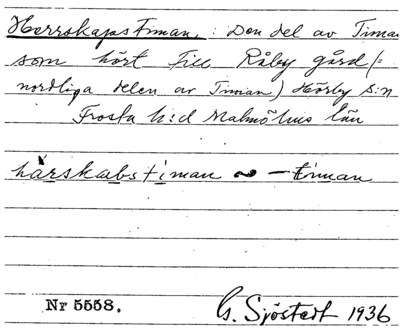 Herrskapstiman. : Den del av Timan
som hört till Råby gård (=
nordliga delen av Timan) Hörby s:n
Frosta h:d Malmöhus län
hàrskabstiman ~ -timan
Nr 5558. G. Sjöstedt 1936